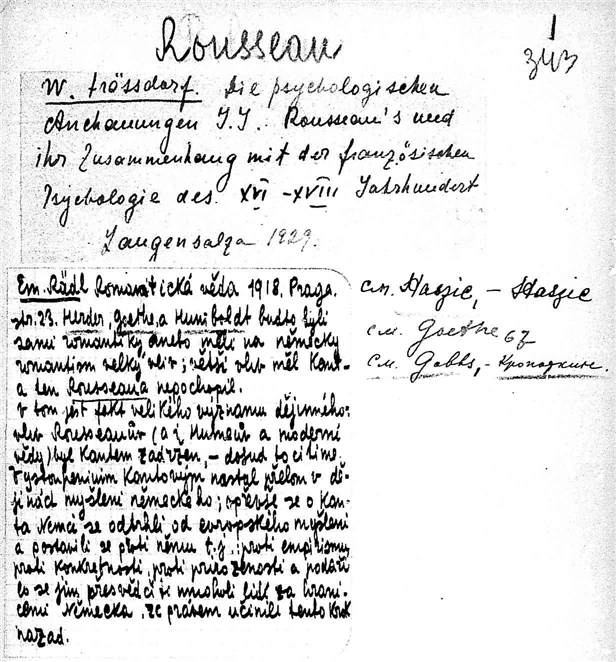 Rousseau
1
343
W. Frössdorf. Die psychologischen
Anchauungen J.J. Rousseau's und
ihr Zusammenhang mit der französischen
Psychologie des XVI –XVIII Jahrhundert
Langensalza 1929.
Em. Rádl Romantická věda 1918. Praga.
str. 23. Herder, Goethe, a Humboldt buďto byli
sami romantiky aneto měli na německý
romantism velký vliv; větší vliv měl Kant-
a ten Rousseaua nepochopil.
V tom jest fakt velikého významu dějinného:
vliv Rousseauův (a i Humeův a moderní
vědy) byl Kantem zadržen, – dosud to cítíme.
Vystoupením Kantovým nastal přelom v dě-
jinách myšlení německého; opřevše se o Kan-
ta Němci se odtrhli od evropského myšlení
a postavili se proti němu t.j. proti empirismu,
proti konkretnosti, proti přirozenosti a podaři
lo se jim přesvědčiti mnohé lidi za hrani-
cemi Německa, že právem učinili tento krok
nazad.
см. Staszic, – Staszic
см. Goethe 67
см. Gobbs, – Кропоткин.